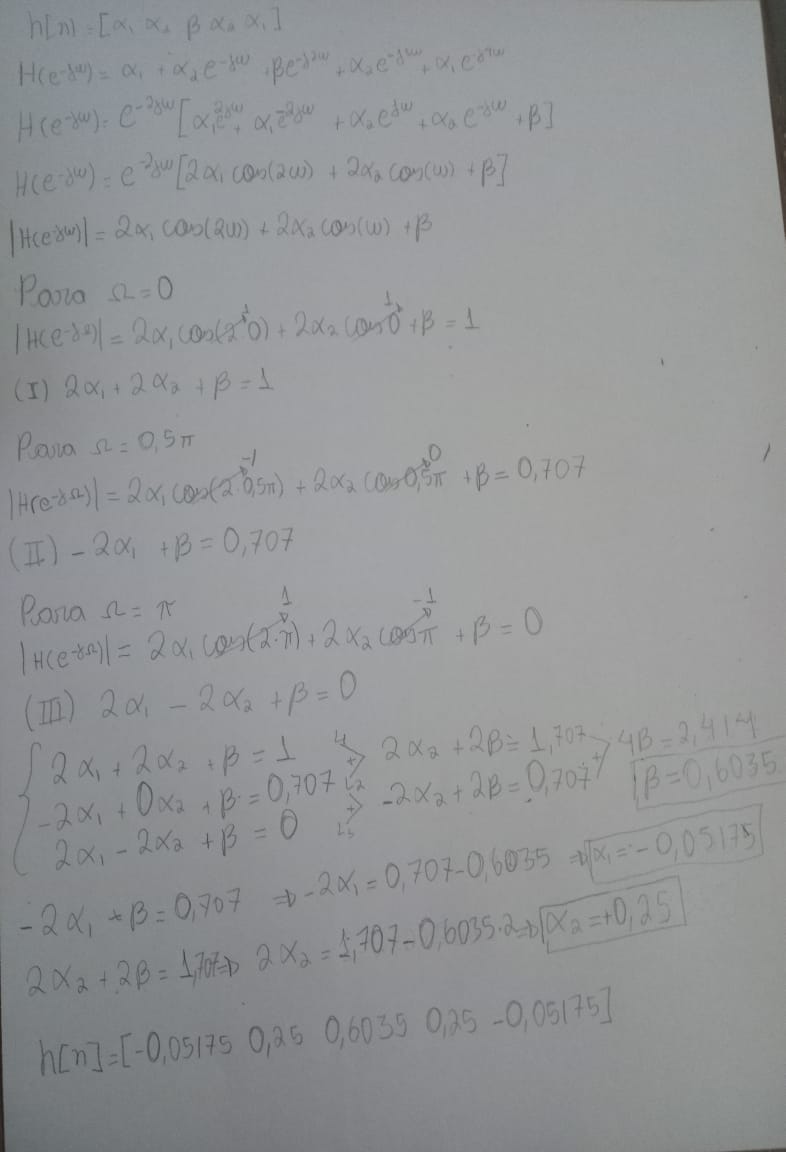 h[n] = [α₁ α₂ β α₂ α₁]
H(e^-jω) = α₁ + α₂e^-jω + βe^-j2ω + α₂e^-j3ω + α₁e^-j4ω
H(e^-jω) = e^-2jω [α₁e^2jω + α₁e^-2jω + α₂e^jω + α₂e^-jω + β]
H(e^-jω) = e^-2jω [2α₁ cos(2ω) + 2α₂ cos(ω) + β]
|H(e^jω)| = 2α₁ cos(2ω) + 2α₂ cos(ω) + β
Para Ω = 0
|H(e^-jΩ)| = 2α₁ cos(2·0)→1 + 2α₂ cos0→1 + β = 1
(I) 2α₁ + 2α₂ + β = 1
Para Ω = 0,5π
|H(e^-jΩ)| = 2α₁ cos(2·0,5π)→-1 + 2α₂ cos0,5π→0 + β = 0,707
(II) -2α₁ + β = 0,707
Para Ω = π
|H(e^-jΩ)| = 2α₁ cos(2·π)→1 + 2α₂ cosπ→-1 + β = 0
(III) 2α₁ - 2α₂ + β = 0
{ 2α₁ + 2α₂ + β = 1 L₁ (+) > 2α₂ + 2β = 1,707 > + 4β = 2,414
-2α₁ + 0α₂ + β = 0,707 L₂ (+) > -2α₂ + 2β = 0,707 β = 0,6035
2α₁ - 2α₂ + β = 0 L₃
-2α₁ + β = 0,707 ⇒ -2α₁ = 0,707 - 0,6035 ⇒ α₁ = -0,05175
2α₂ + 2β = 1,707 ⇒ 2α₂ = 1,707 - 0,6035·2 ⇒ α₂ = +0,25
h[n] = [-0,05175 0,25 0,6035 0,25 -0,05175]